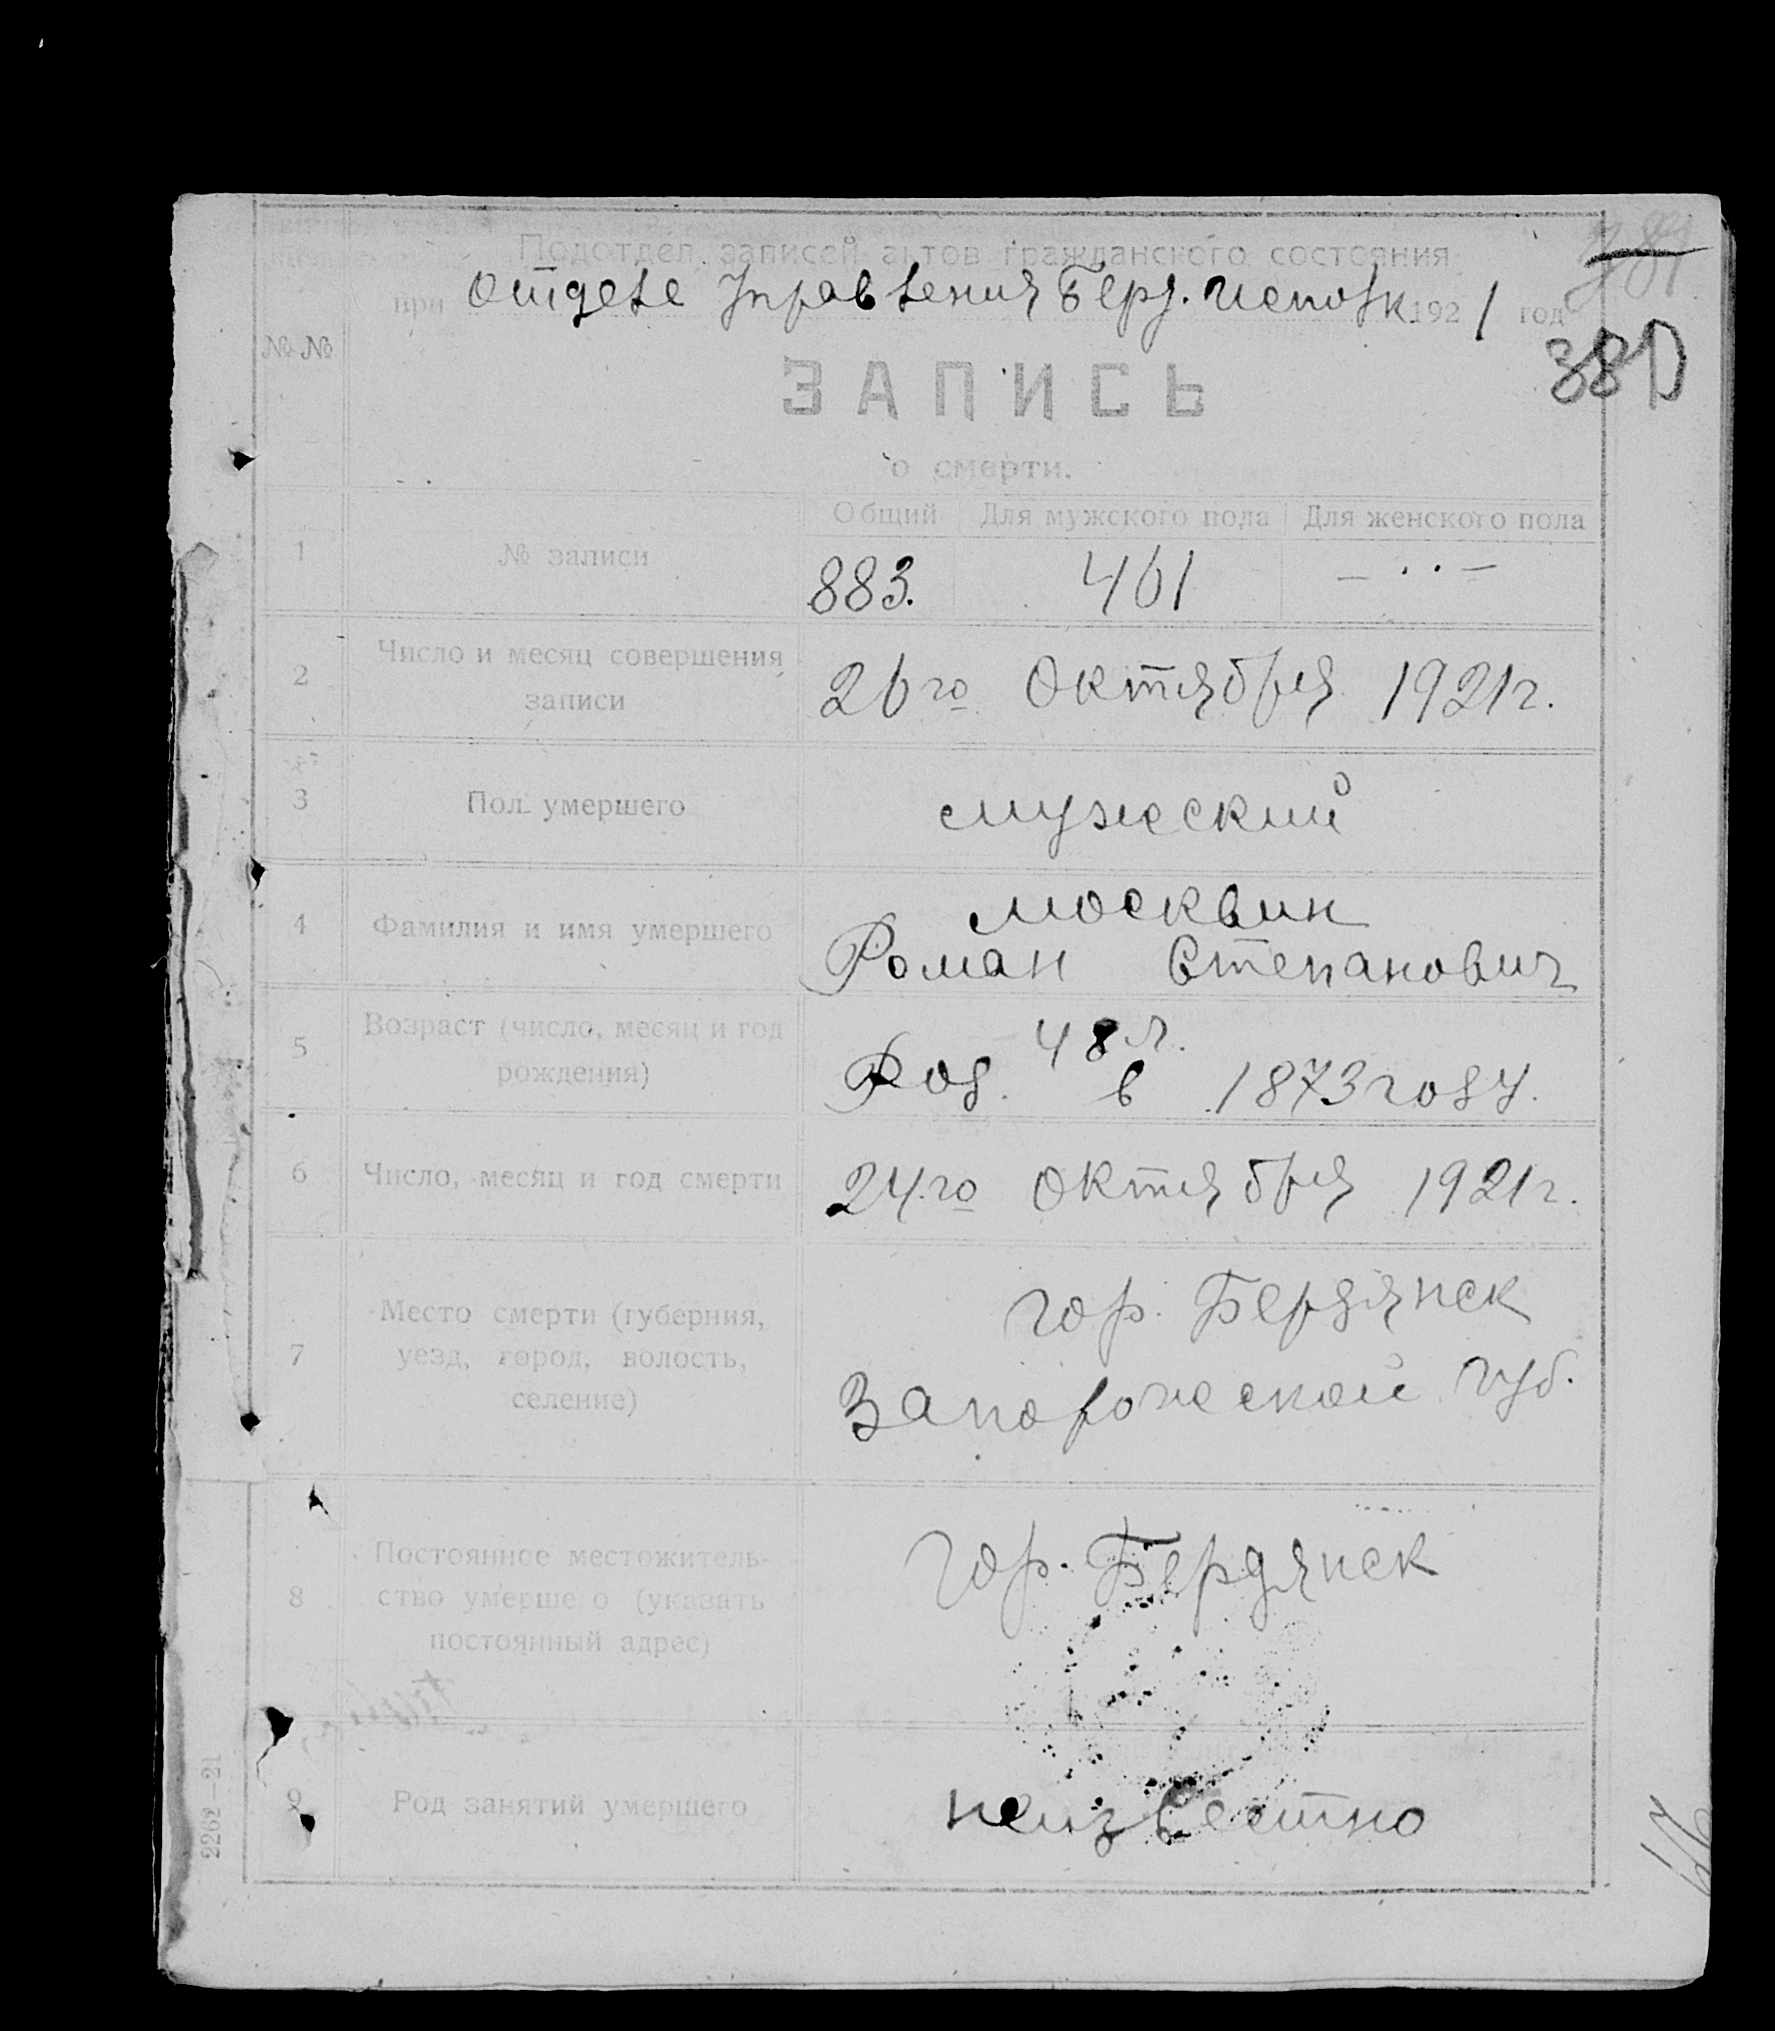 Подотдел записей актов гражданского состояния
при Отделе Управления Берд. Исполк. 1921 год
№ №
380
ЗАПИСЬ
о смерти.
Общий Для мужского пола Для женского пола
1 № записи 883. 461 — · · —
2 Число и месяц совершения
записи
26го Октября 1921 г.
3 Пол умершего мужеский
4 Фамилия и имя умершего
Москвин
Роман Степанович
5 Возраст (число, месяц и год
рождения)
48 л.
Род. в 1873 году.
6 Число, месяц и год смерти 24го Октября 1921 г.
7 Место смерти (губерния,
уезд, город, волость,
селение)
гор. Бердянск
Запорожской губ.
8 Постоянное местожитель-
ство умерше о (указать
постоянный адрес)
гор. Бердянск
9 Род занятий умершего неизвестно
2262—21